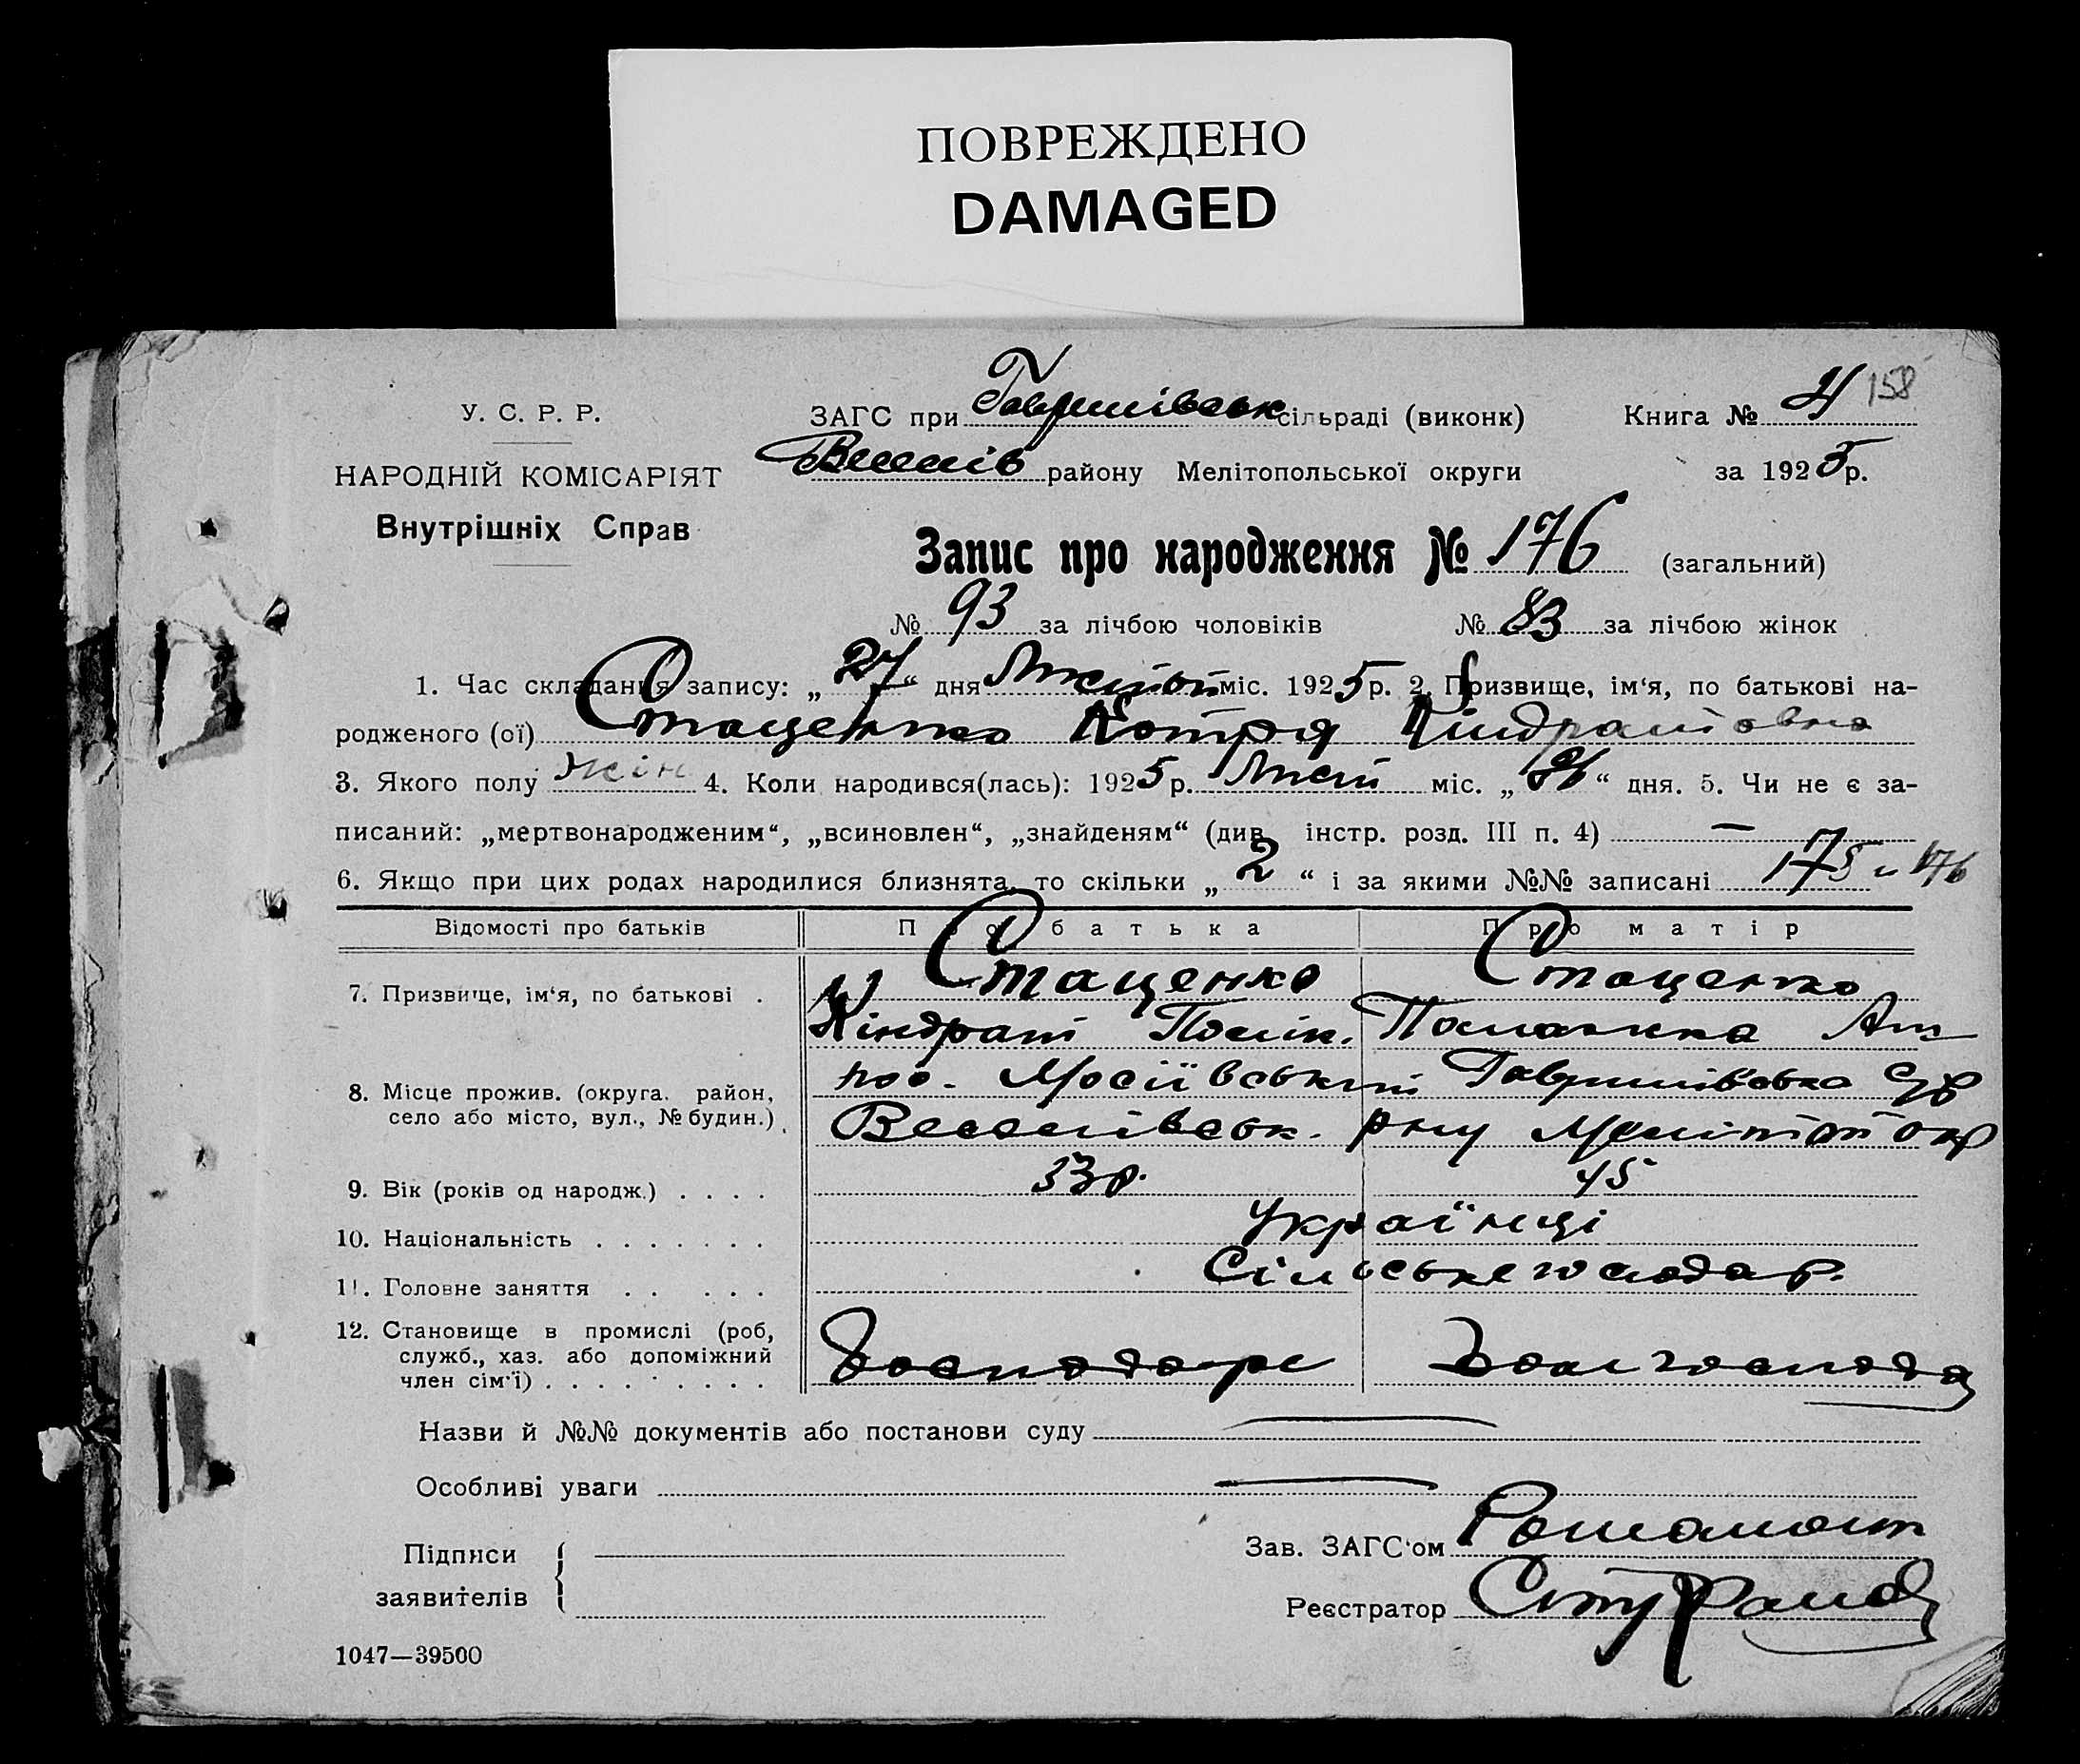 ПОВРЕЖДЕНО
DAMAGED
158
У. С. Р. Р.
ЗАГС при Гаврилівськ сільраді (виконк)
Книга № 4
НАРОДНІЙ КОМІСАРІЯТ
Веселів району Мелітопольської округи
за 1925 р.
Внутрішніх Справ
Запис про народження № 176 (загальний)
№ 93 за лічбою чоловіків № 83 за лічбою жінок
1. Час складання запису: „27“ дня міс. 1925 р. 2. Призвище, ім‘я, по батькові на-
родженого (ої) Стаценко Котря Кіндратовна
3. Якого полу жін 4. Коли народився(лась): 1925 р. Лист міс. „ “ дня. 5. Чи не є за-
писаний: „мертвонародженим“, „всиновлен“, „знайденям“ (див. інстр. розд. III п. 4) —
6. Якщо при цих родах народилися близнята, то скільки „2“ і за якими №№ записані 175 и 176
Відомості про батьків
Про батька
Про матір
7. Призвище, ім‘я, по батькові .
Стаценко
Стаценко
Кіндрат Полік.
8. Місце прожив. (округа, район,
село або місто, вул., № будин.) .
Гаврилівська
Веселівськ. рну Меліт окр
9. Вік (років од народж.) . . . .
33 р.
45
10. Національність . . . . . . .
Українці
11. Головне заняття . . . . . .
Сільське господар.
12. Становище в промислі (роб,
служб., хаз. або допоміжний
член сім‘ї) . . . . . . . . .
Господарь
Дом господа
Назви й №№ документів або постанови суду —
Особливі уваги —
Підписи
заявителів
Зав. ЗАГС‘ом
Реєстратор
1047—39500